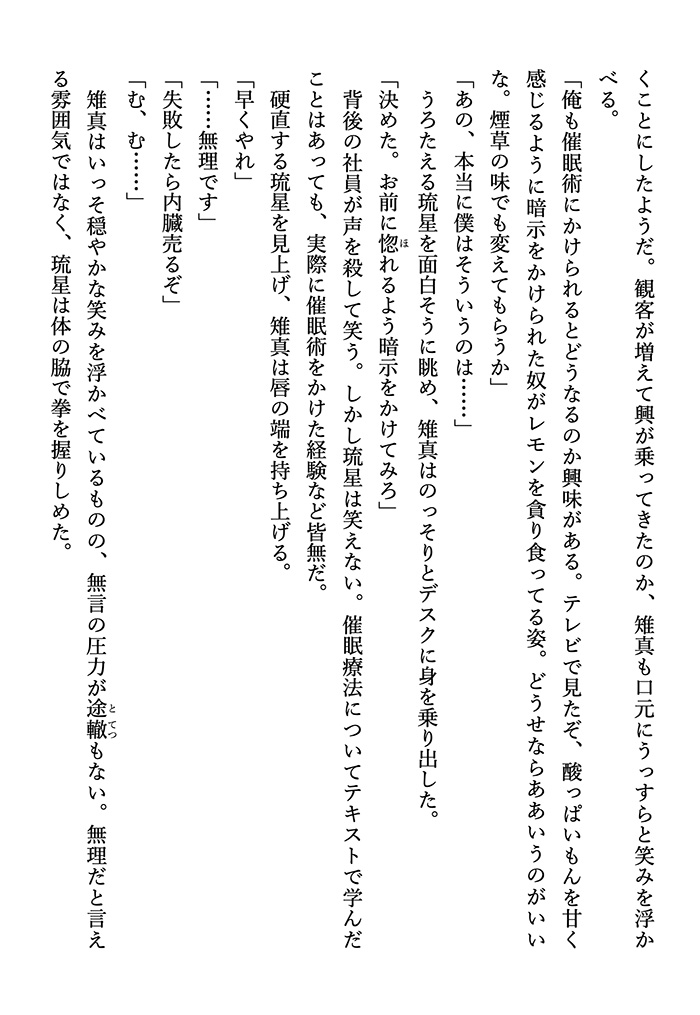 くことにしたようだ。観客が増えて興が乗ってきたのか、雉真も口元にうっすらと笑みを浮か
べる。
「俺も催眠術にかけられるとどうなるのか興味がある。テレビで見たぞ、酸っぱいもんを甘く
感じるように暗示をかけられた奴がレモンを貪り食ってる姿。どうせならああいうのがいい
な。煙草の味でも変えてもらうか」
「あの、本当に僕はそういうのは……」
うろたえる琉星を面白そうに眺め、雉真はのっそりとデスクに身を乗り出した。
「決めた。お前に惚れるよう暗示をかけてみろ」
背後の社員が声を殺して笑う。しかし琉星は笑えない。催眠療法についてテキストで学んだ
ことはあっても、実際に催眠術をかけた経験など皆無だ。
硬直する琉星を見上げ、雉真は唇の端を持ち上げる。
「早くやれ」
「……無理です」
「失敗したら内臓売るぞ」
「む、む……」
雉真はいっそ穏やかな笑みを浮かべているものの、無言の圧力が途轍もない。無理だと言え
る雰囲気ではなく、琉星は体の脇で拳を握りしめた。